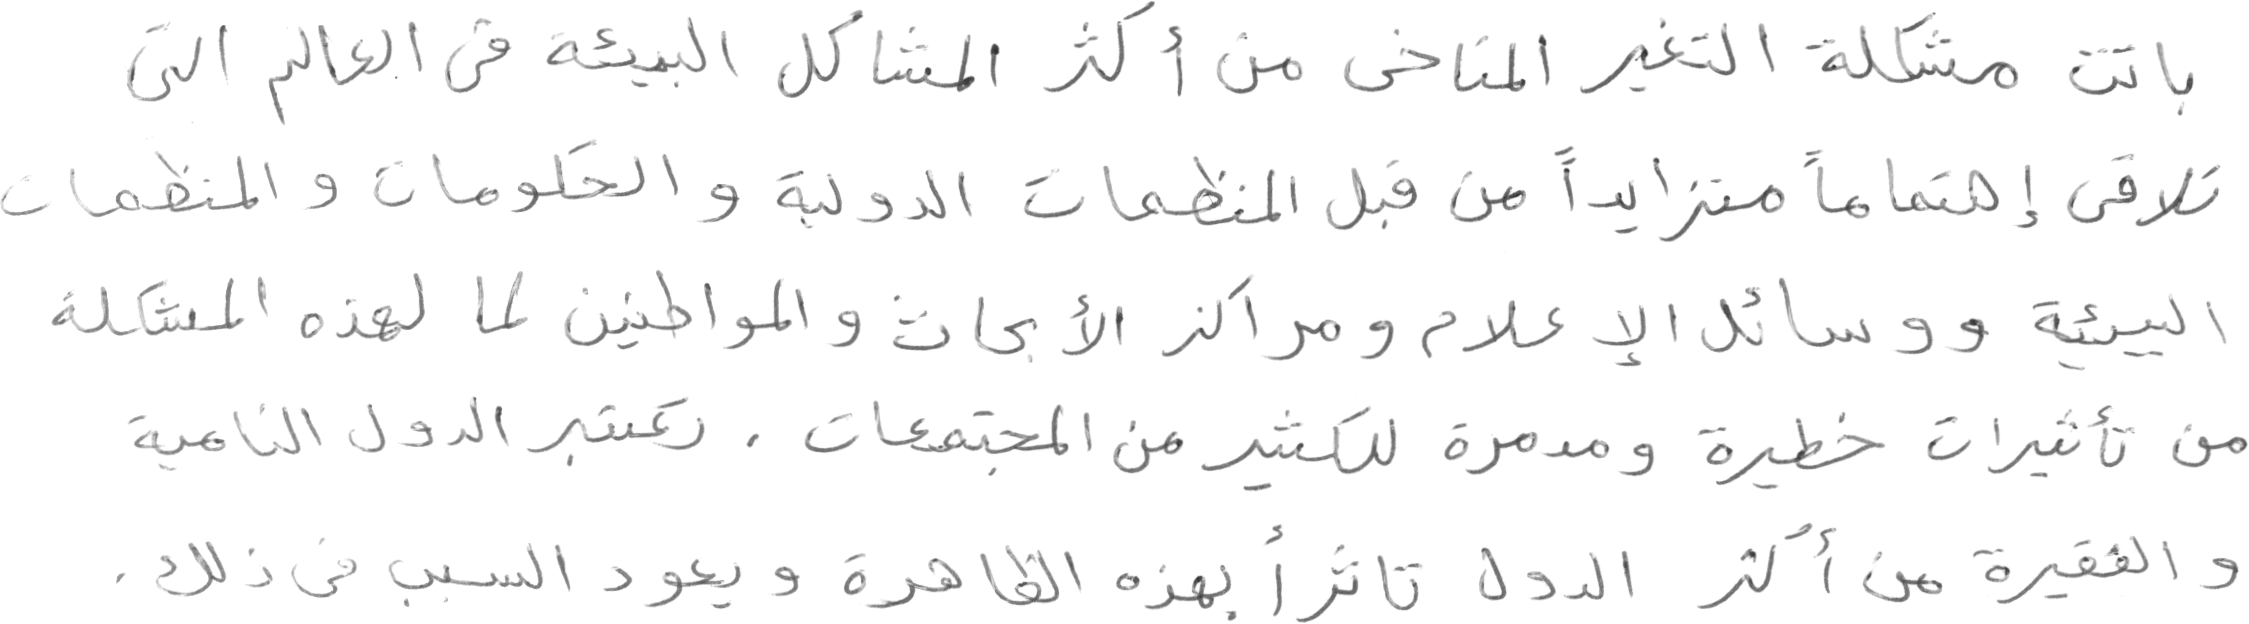 باتت مشكلة التغير المناخى من أكثر المشاكل البيئة فى العالم التى
تلاقى إهتماماً متزايداً من قبل المنظمات الدولية والحكومات والمنظمات
البيئية ووسائل الإعلام ومراكز الأبحاث والمواطنين لما لهذه المشكلة
من تأثيرات خطيرة ومدمرة للكثير من المجتمعات . وتعتبر الدول النامية
والفقيرة من أكثر الدول تاثرأ بهذه الظاهرة ويعود السبب فى ذلك .